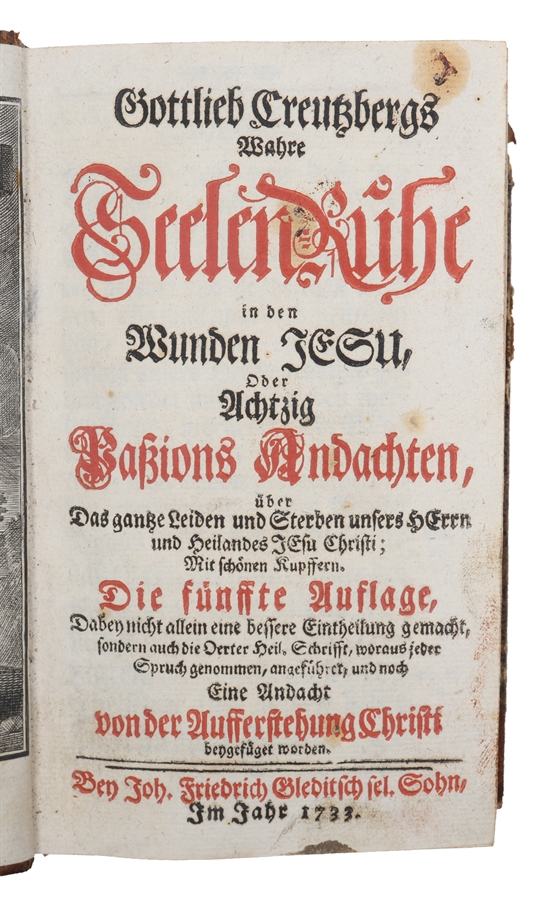 Gottlieb Creutzbergs
Wahre
Seelen Ruhe
in den
Wunden JESU,
Oder
Achtzig
Paßions Andachten,
über
Das gantze Leiden und Sterben unsers HErrn
und Heilandes JEsu Christi;
Mit schönen Kupffern.
Die fünffte Auflage,
Dabey nicht allein eine bessere Eintheilung gemacht,
sondern auch die Oerter Heil. Schrifft, woraus jeder
Spruch genommen, angeführet, und noch
Eine Andacht
von der Aufferstehung Christi
beygefüget worden.
Bey Joh. Friedrich Gleditsch sel. Sohn,
Im Jahr 1733.